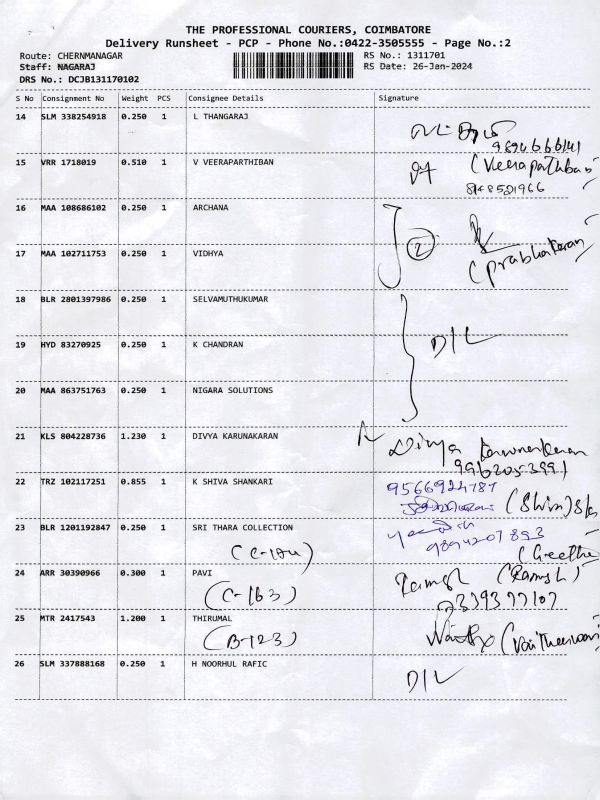 THE PROFESSIONAL COURIERS, COIMBATORE
Delivery Runsheet - PCP - Phone No.:0422-3505555 - Page No.:2
Route: CHERNMANAGAR
Staff: NAGARAJ
DRS No.: DCJB131170102
RS No.: 1311701
RS Date: 26-Jan-2024
S No Consignment No Weight PCS Consignee Details Signature
14 SLM 338254918 0.250 1 L THANGARAJ
15 VRR 1718019 0.510 1 V VEERAPARTHIBAN
16 MAA 108686102 0.250 1 ARCHANA
(2)
17 MAA 102711753 0.250 1 VIDHYA
(Prabhakaran)
18 BLR 2801397986 0.250 1 SELVAMUTHUKUMAR
19 HYD 83270925 0.250 1 K CHANDRAN D/L
20 MAA 863751763 0.250 1 NIGARA SOLUTIONS
21 KLS 804228736 1.230 1 DIVYA KARUNAKARAN Divya
22 TRZ 102117251 0.855 1 K SHIVA SHANKARI
23 BLR 1201192847 0.250 1 SRI THARA COLLECTION
24 ARR 30390966 0.300 1 PAVI
(C-163)
25 MTR 2417543 1.200 1 THIRUMAL
(B-123)
26 SLM 337888168 0.250 1 H NOORHUL RAFIC
D/L